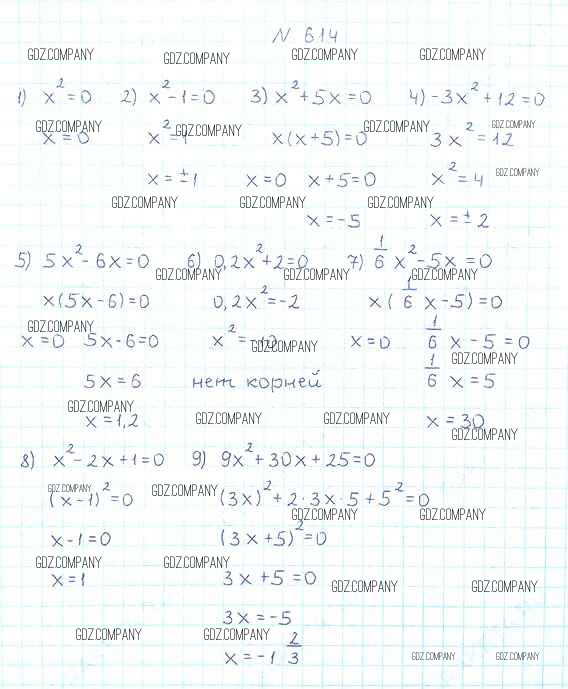 N 614
GDZ.COMPANY GDZ.COMPANY GDZ.COMPANY GDZ.COMPANY
1) x² = 0 2) x² - 1 = 0 3) x² + 5x = 0 4) -3x² + 12 = 0
GDZ.COMPANY GDZ.COMPANY GDZ.COMPANY GDZ.COMPANY
x = 0 x² = 1 x(x + 5) = 0 3x² = 12
x = ±1 x = 0 x + 5 = 0 x² = 4 GDZ.COMPANY
GDZ.COMPANY GDZ.COMPANY GDZ.COMPANY
x = -5 x = ±2
5) 5x² - 6x = 0 6) 0,2x² + 2 = 0 7) 1/6 x² - 5x = 0
GDZ.COMPANY GDZ.COMPANY GDZ.COMPANY
x(5x - 6) = 0 0,2x² = -2 x(1/6 x - 5) = 0
GDZ.COMPANY
x = 0 5x - 6 = 0 x² = -10 x = 0 1/6 x - 5 = 0
GDZ.COMPANY GDZ.COMPANY
5x = 6 нет корней 1/6 x = 5
GDZ.COMPANY GDZ.COMPANY GDZ.COMPANY
x = 1,2 x = 30
GDZ.COMPANY
8) x² - 2x + 1 = 0 9) 9x² + 30x + 25 = 0
GDZ.COMPANY GDZ.COMPANY
(x - 1)² = 0 (3x)² + 2 · 3x · 5 + 5² = 0
GDZ.COMPANY GDZ.COMPANY
x - 1 = 0 (3x + 5)² = 0
GDZ.COMPANY GDZ.COMPANY
x = 1 3x + 5 = 0 GDZ.COMPANY GDZ.COMPANY
3x = -5
GDZ.COMPANY GDZ.COMPANY
x = -1 2/3 GDZ.COMPANY GDZ.COMPANY